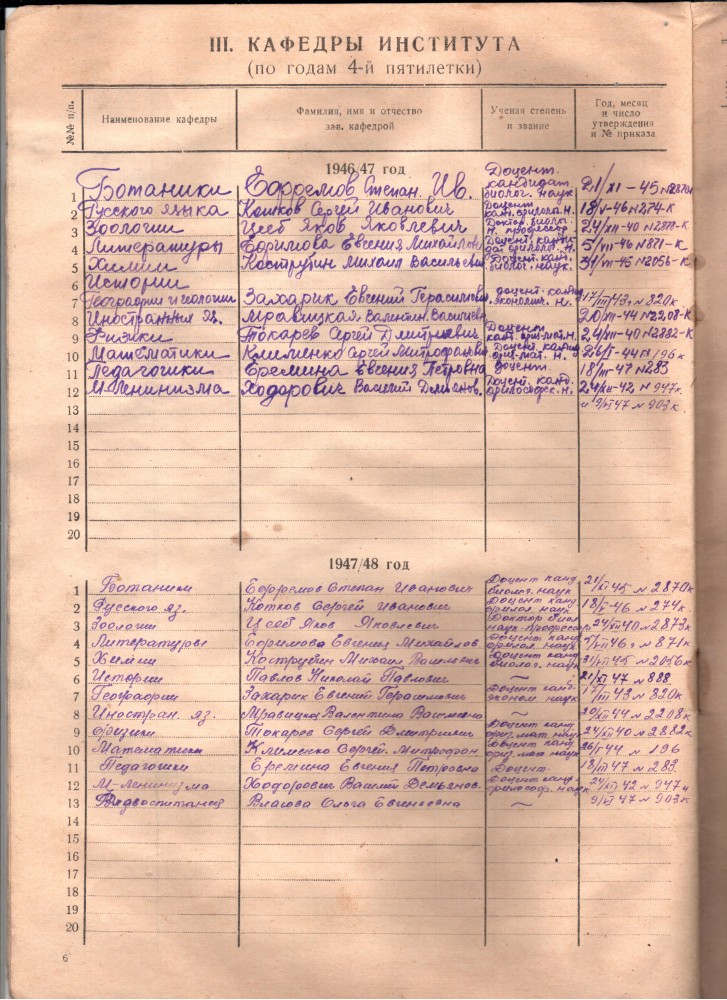 III. КАФЕДРЫ ИНСТИТУТА
(по годам 4-й пятилетки)
№№ п/п. Наименование кафедры Фамилия, имя и отчество зав. кафедрой Ученая степень и звание Год, месяц и число утверждения и № приказа
1946/47 год
1 Ботаники Ефремов Степан Ив. Доцент кандидат биолог. наук 21/XI-45 №2870к
2 Русского языка Котков Сергей Иванович Доцент канд. филолог. н. 18/V-46 №274-к
3 Зоологии Цееб Яков Яковлевич Доктор биолог. н. профессор 24/XII-40 №2873-к
4 Литературы Ефимова Евгения Михайлов Доцент, канди дат филолог. н. 5/VII-46 №871-к
5 Химии Кострубин Михаил Васильевич Доцент канд. биолог. наук. 31/VII-45 №2056-к
6 Истории
7 Географии и геологии Захарик Евгений Герасимович доцент канд. экономич. н. 17/III 43г. №820к
8 Иностранных яз. Мравицкая Валентин. Васильевн 20/XII-44 №2208к
9 Физики Токарев Сергей Дмитриевич Доцент канд. физ-мат. н. 24/XII-40 №2882-к
10 Математики Клименко Сергей Митрофанович Доцент. канд. физ-мат. н. 26/I-44 №196к
11 Педагогики Еремина Евгения Петровна доцент. 18/III-47 №283
12 М-Ленинизма Ходорович Василий Демьянов. Доцент. канд. философск. н. 24/XII-42 №947к
13 и 9/VI 47 №903к.
14
15
16
17
18
19
20
1947/48 год
1 Ботаники Ефремов Степан Иванович Доцент канд биолог. наук 21/XI 45 №2870к
2 Русского яз. Котков Сергей Иванович Доцент канд. филол. наук 18/V-46 №274к
3 Зоологии Цееб Яков Яковлевич Доктор биол наук профессор 24/XII 40 №2873к
4 Литературы Ефимова Евгения Михайлов Доцент канд филол. наук 5/VII 46г №871к
5 Химии Кострубин Михаил Васильевич Доцент канд биолог. наук 31/VII 45 №2056к
6 Истории Павлов Николай Павлович ~ 21/XI 47 №888
7 Географии Захарик Евгений Герасимович Доцент канд. эконом. наук 17/III 43 №820к
8 Иностран. яз. Мравицкая Валентина Васильевна 20/XII 44 №2208к
9 Физики Токарев Сергей Дмитриевич Доцент канд физ. мат наук 24/XII 40 №2882к
10 Математики Клименко Сергей. Митрофан Доцент канд физ. мат наук 26/I 44 №196
11 Педагогики Еремина Евгения Петровна Доцент. 18/III 47 №283
12 М-Ленинизма Ходорович Василий Демьянов. Доцент канд. философ. наук 24/XII 42 №947 и
13 Военвоспитания Власова Ольга Евгеньевна ~ 9/VI 47 №903к
14
15
16
17
18
19
20
6